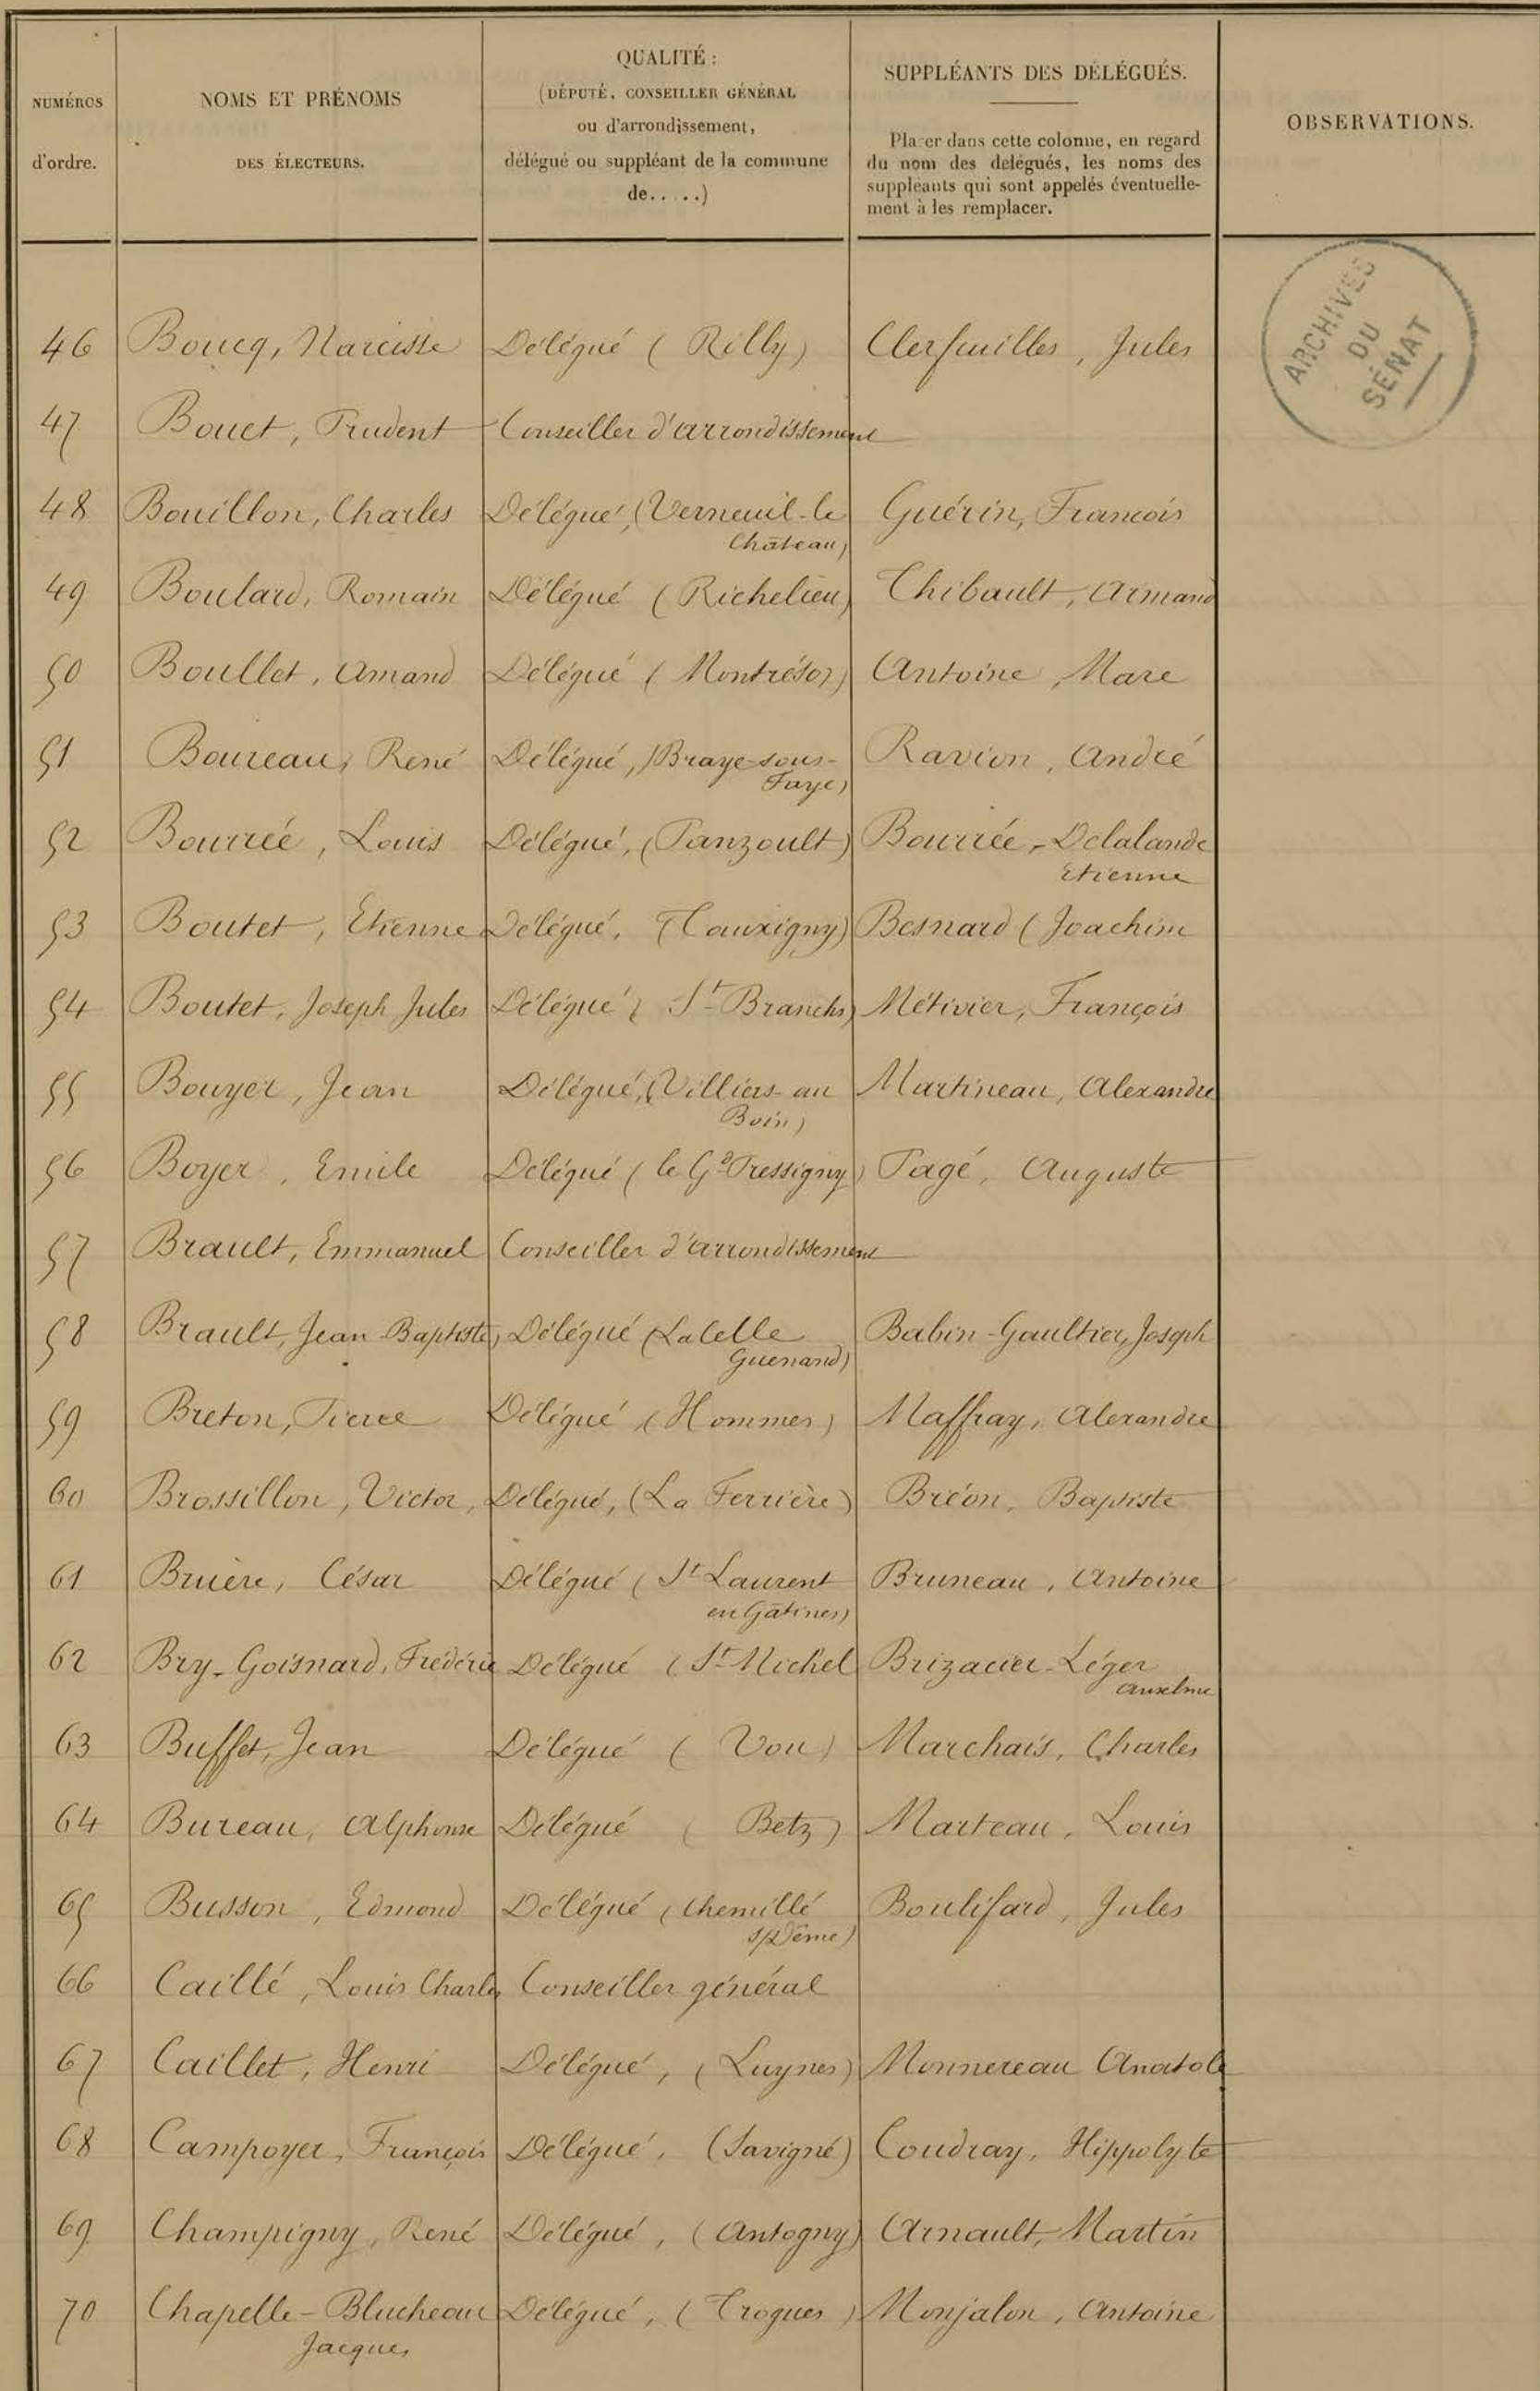 NUMÉROS
d'ordre.
NOMS ET PRÉNOMS
DES ÉLECTEURS.
QUALITÉ :
(DÉPUTÉ, CONSEILLER GÉNÉRAL
ou d'arrondissement,
délégué ou suppléant de la commune
de.....)
SUPPLÉANTS DES DÉLÉGUÉS.
Placer dans cette colonne, en regard
du nom des délégués, les noms des
suppléants qui sont appelés éventuelle-
ment à les remplacer.
OBSERVATIONS.
ARCHIVES
DU
SÉNAT
46 Boucq, Narcisse Délégué (Rilly) Clerfeuilles, Jules
47 Bouet, Prudent Conseiller d'arrondissement
48 Bouillon, Charles Délégué, (Verneuil-le Guérin, François
Château)
49 Boulard, Romain Délégué (Richelieu) Thibault, Armand
50 Boullet, Amand Délégué (Montrésor) Antoine, Marc
51 Boureau, René Délégué, (Braye-sous- Ravion, André
Faye)
52 Bourrée, Louis Délégué, (Panzoult) Bourrée-Delalande
Etienne
53 Boutet, Etienne Délégué, (Tauxigny) Besnard (Joachim
54 Boutet, Joseph Jules Délégué (St Branchs) Métivier, François
55 Bouyer, Jean Délégué, (Villiers-au Martineau, Alexandre
Boin)
56 Boyer, Emile Délégué (le Gd Pressigny) Pagé, Auguste
57 Brault, Emmanuel Conseiller d'arrondissement
58 Brault, Jean-Baptiste, Délégué (La Celle Babin-Gaultier, Joseph
Guenand)
59 Breton, Pierre Délégué (Hommes) Maffray, Alexandre
60 Brossillon, Victor, Délégué, (La Ferrière) Bréon, Baptiste
61 Bruère, César Délégué (St Laurent Bruneau, Antoine
en Gâtines)
62 Bry-Goisnard, Frédéric Délégué (St-Michel Brizacier-Léger
Anselme
63 Buffet, Jean Délégué (Vou) Marchais, Charles
64 Bureau, Alphonse Délégué (Betz) Marteau, Louis
65 Busson, Edmond Délégué (Chemillé Boulifard, Jules
s/Dême)
66 Caillé, Louis Charles Conseiller général
67 Caillet, Henri Délégué, (Luynes) Monnereau Anatole
68 Campoyer, François Délégué, (Savigné) Coudray, Hippolyte
69 Champigny, René Délégué, (Antogny) Arnault, Martin
70 Chapelle-Blucheau Délégué, (Trogues) Monjalon, Antoine
Jacques